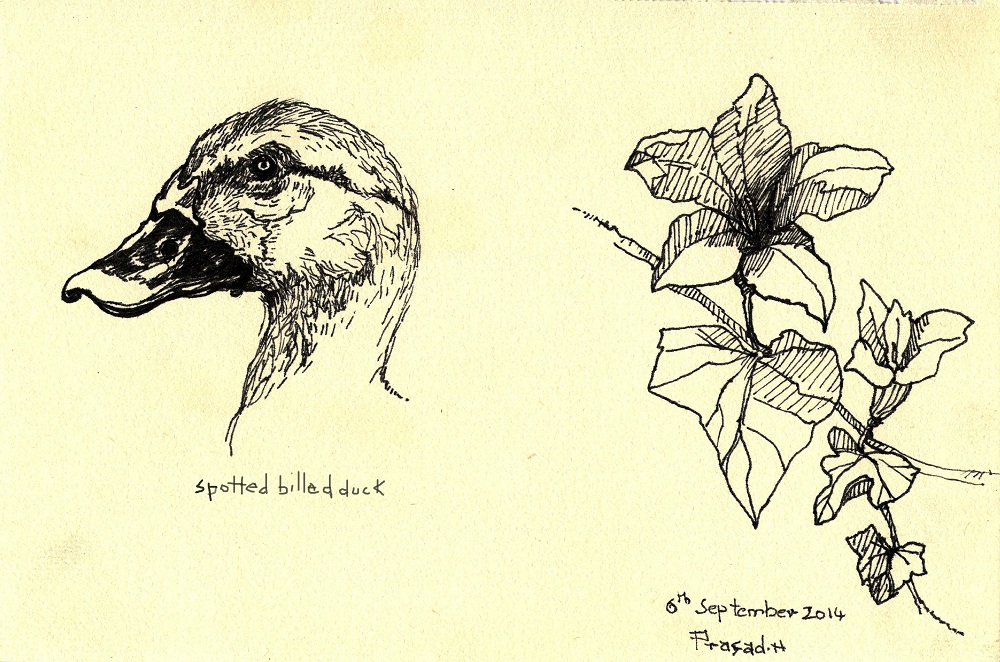 spotted billed duck
6th September 2014
Prasad.H